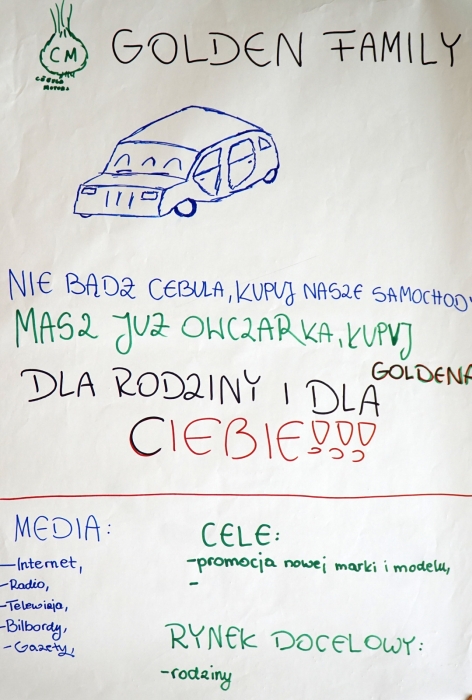 CM
CEBULA
MOTORS
GOLDEN FAMILY
NIE BĄDZ CEBULA, KUPUJ NASZE SAMOCHODY
MASZ JUZ OWCZARKA, KUPUJ
GOLDENA
DLA RODZINY I DLA
CIEBIE!!!
MEDIA:
-Internet,
-Radio,
-Telewizja,
-Bilbordy,
-Gazety,
CELE:
-promocja nowej marki i modelu,
-
RYNEK DOCELOWY:
-rodziny